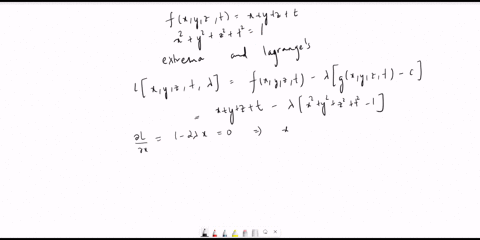 f(x,y,z,t) = x+y+z+t
x² + y² + z² + t² = 1
extrema and lagrange's
L[x,y,z,t,λ] = f(x,y,z,t) - λ[g(x,y,z,t) - c]
= x+y+z+t - λ[x²+y²+z²+t² - 1]
∂L/∂x = 1-2λx = 0 ⇒ x